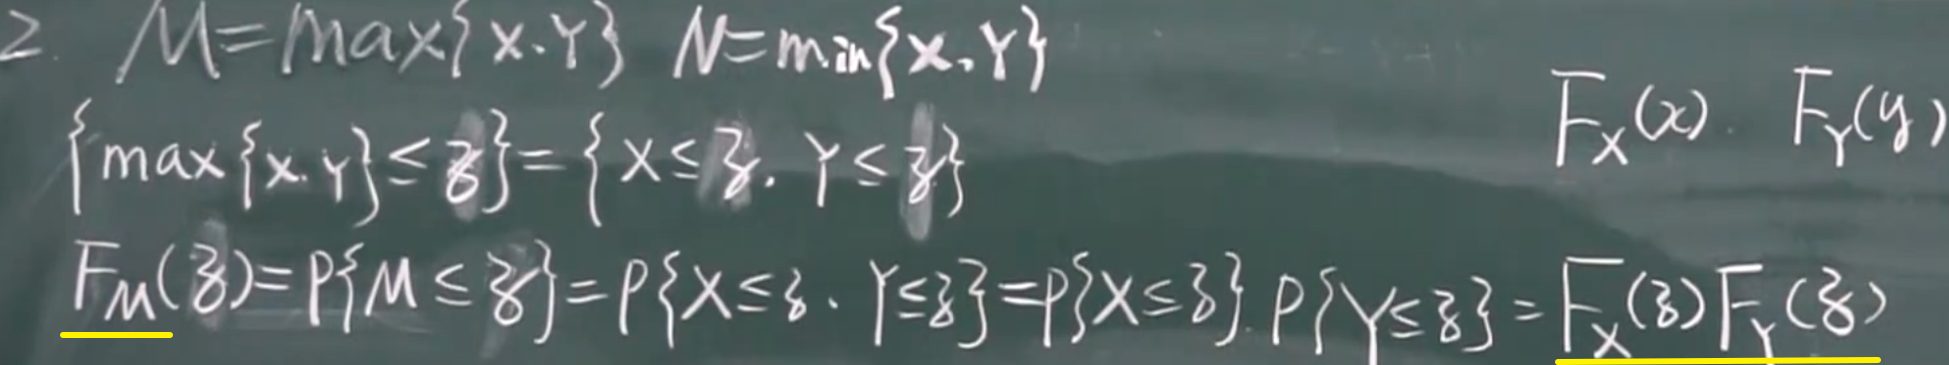 2. M=max{X.Y} N=min{X.Y}
F_X(x). F_Y(y)
{max{X.Y}≤z}={X≤z. Y≤z}
F_M(z)=P{M≤z}=P{X≤z. Y≤z}=P{X≤z}.P{Y≤z}=F_X(z)F_Y(z)